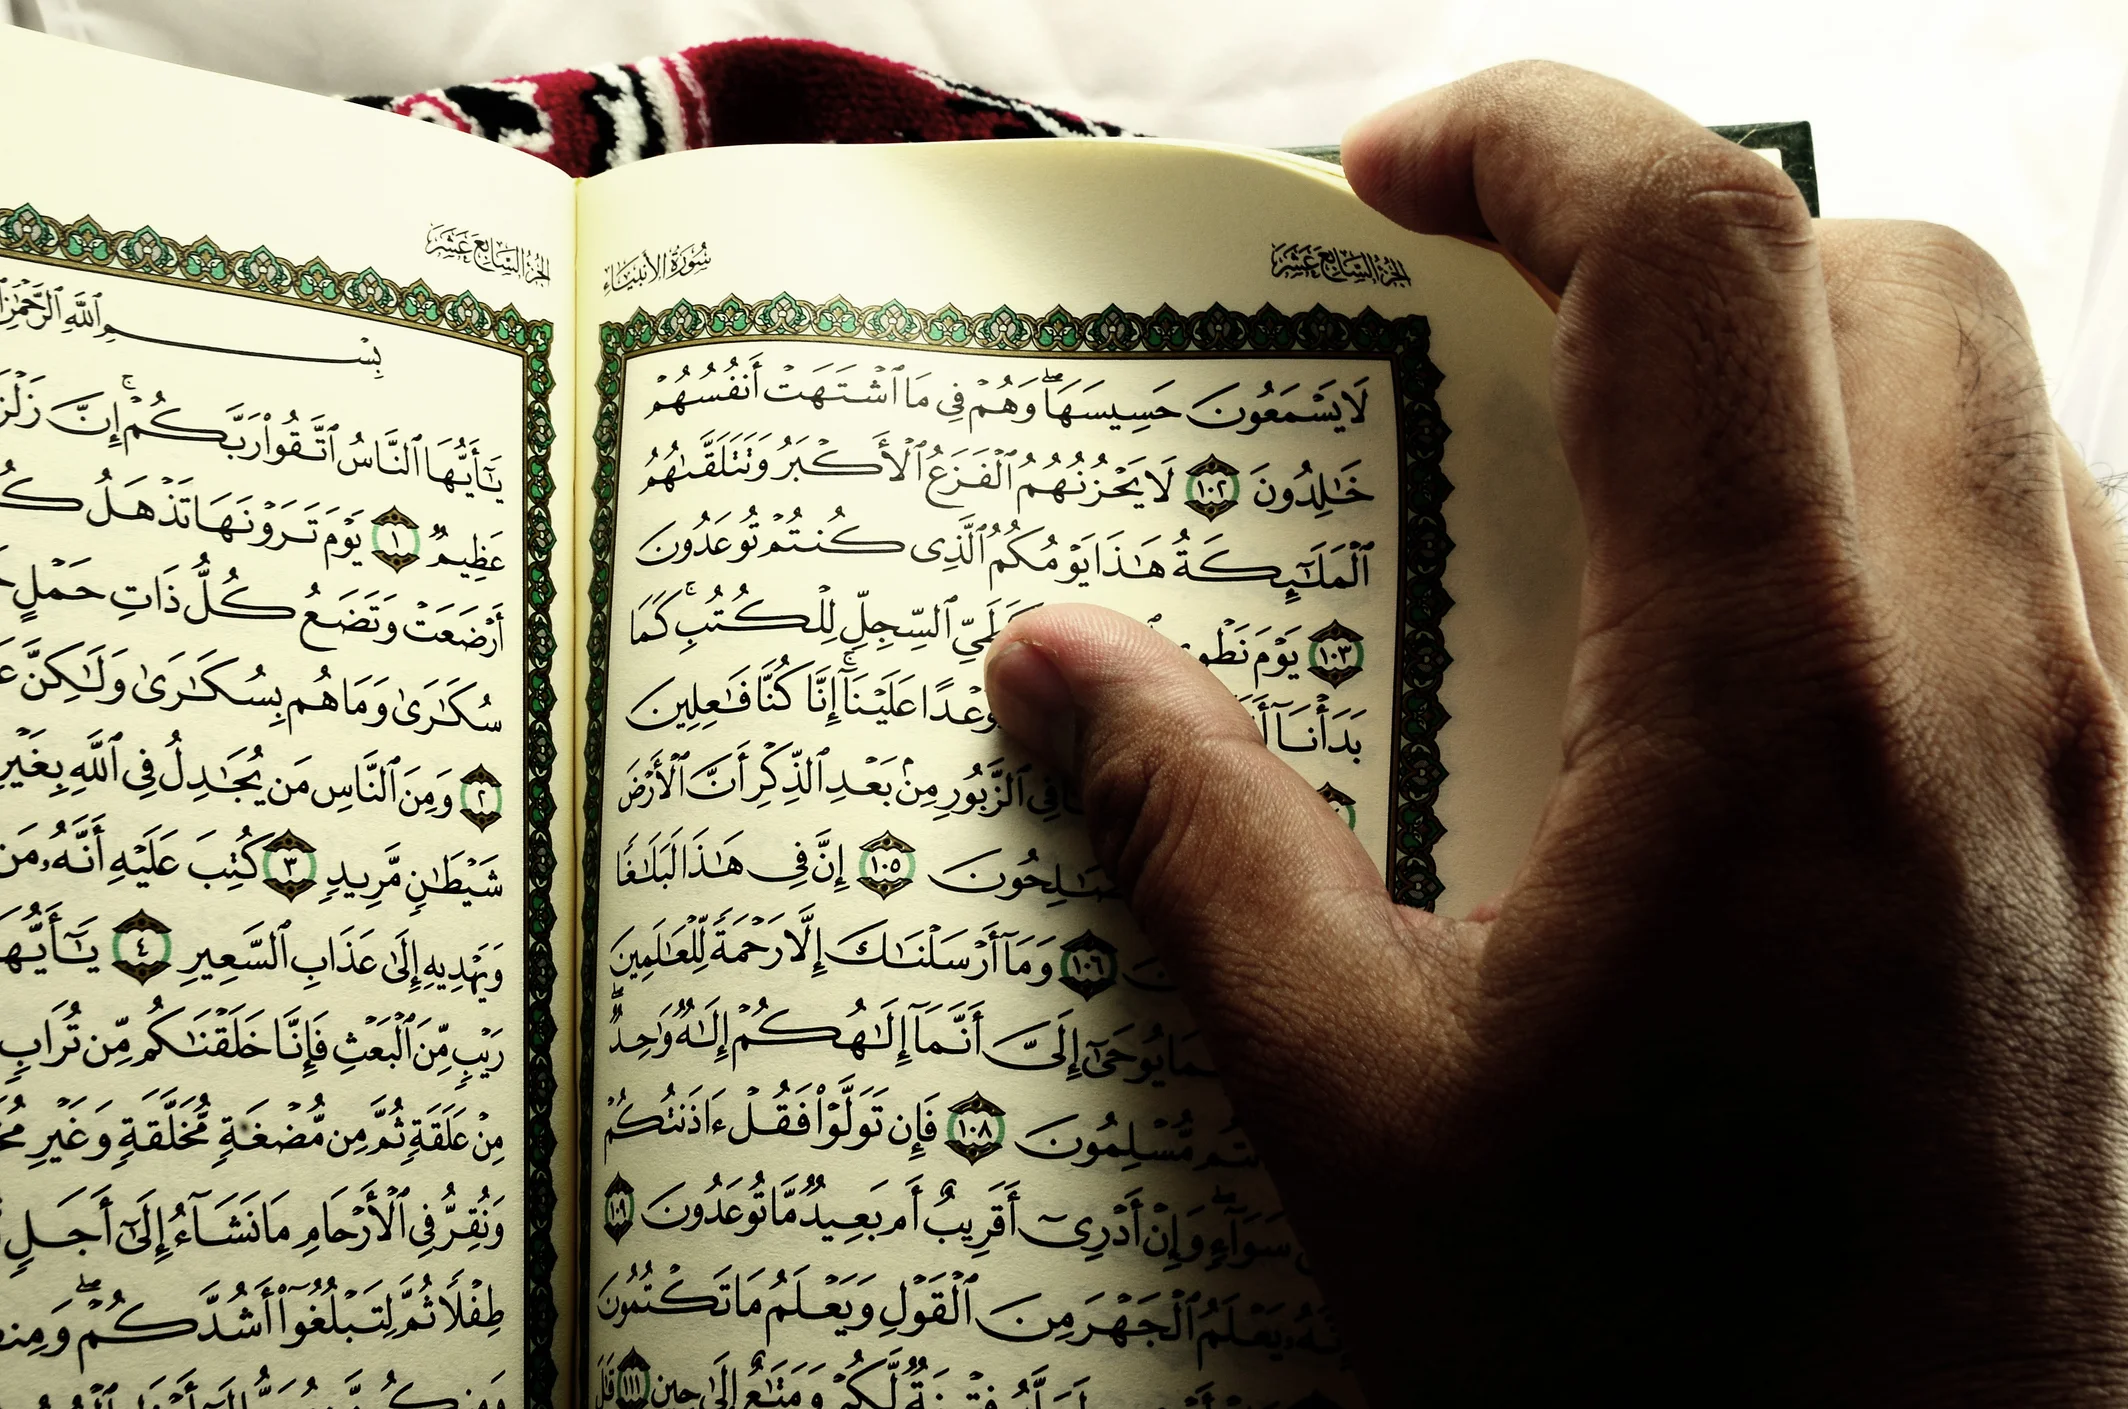 الجزء السابع عشر
سورة الأنبياء
لَا يَسْمَعُونَ حَسِيسَهَا ۖ وَهُمْ فِي مَا ٱشْتَهَتْ أَنفُسُهُمْ
خَٰلِدُونَ ١٠٢ لَا يَحْزُنُهُمُ ٱلْفَزَعُ ٱلْأَكْبَرُ وَتَتَلَقَّىٰهُمُ
ٱلْمَلَٰٓئِكَةُ هَٰذَا يَوْمُكُمُ ٱلَّذِى كُنتُمْ تُوعَدُونَ
١٠٣ يَوْمَ نَطْوِى كَطَىِّ ٱلسِّجِلِّ لِلْكُتُبِ ۚ كَمَا
بَدَأْنَآ وَعْدًا عَلَيْنَآ ۚ إِنَّا كُنَّا فَٰعِلِينَ
فِى ٱلزَّبُورِ مِنۢ بَعْدِ ٱلذِّكْرِ أَنَّ ٱلْأَرْضَ
١٠٥ إِنَّ فِى هَٰذَا لَبَلَٰغًا
١٠٦ وَمَآ أَرْسَلْنَٰكَ إِلَّا رَحْمَةً لِّلْعَٰلَمِينَ
يُوحَىٰٓ إِلَىَّ أَنَّمَآ إِلَٰهُكُمْ إِلَٰهٌ وَٰحِدٌ ۖ
مُّسْلِمُونَ ١٠٨ فَإِن تَوَلَّوْا۟ فَقُلْ ءَاذَنتُكُمْ
سَوَآءٍ ۖ وَإِنْ أَدْرِىٓ أَقَرِيبٌ أَم بَعِيدٌ مَّا تُوعَدُونَ ١٠٩
يَعْلَمُ ٱلْجَهْرَ مِنَ ٱلْقَوْلِ وَيَعْلَمُ مَا تَكْتُمُونَ
فِتْنَةٌ لَّكُمْ وَمَتَٰعٌ إِلَىٰ حِينٍ ١١١ قَٰلَ
الجزء السابع عشر
بِسْمِ ٱللَّهِ ٱلرَّحْمَٰنِ
يَٰٓأَيُّهَا ٱلنَّاسُ ٱتَّقُوا۟ رَبَّكُمْ ۚ إِنَّ
عَظِيمٌ ١ يَوْمَ تَرَوْنَهَا تَذْهَلُ
أَرْضَعَتْ وَتَضَعُ كُلُّ ذَاتِ حَمْلٍ
سُكَٰرَىٰ وَمَا هُم بِسُكَٰرَىٰ وَلَٰكِنَّ
٢ وَمِنَ ٱلنَّاسِ مَن يُجَٰدِلُ فِى ٱللَّهِ بِغَيْرِ
شَيْطَٰنٍ مَّرِيدٍ ٣ كُتِبَ عَلَيْهِ أَنَّهُۥ مَن
وَيَهْدِيهِ إِلَىٰ عَذَابِ ٱلسَّعِيرِ ٤ يَٰٓأَيُّهَا
رَيْبٍ مِّنَ ٱلْبَعْثِ فَإِنَّا خَلَقْنَٰكُم مِّن تُرَابٍ
مِنْ عَلَقَةٍ ثُمَّ مِن مُّضْغَةٍ مُّخَلَّقَةٍ وَغَيْرِ
وَنُقِرُّ فِى ٱلْأَرْحَامِ مَا نَشَآءُ إِلَىٰٓ أَجَلٍ
طِفْلًا ثُمَّ لِتَبْلُغُوٓا۟ أَشُدَّكُمْ ۖ وَمِنكُم